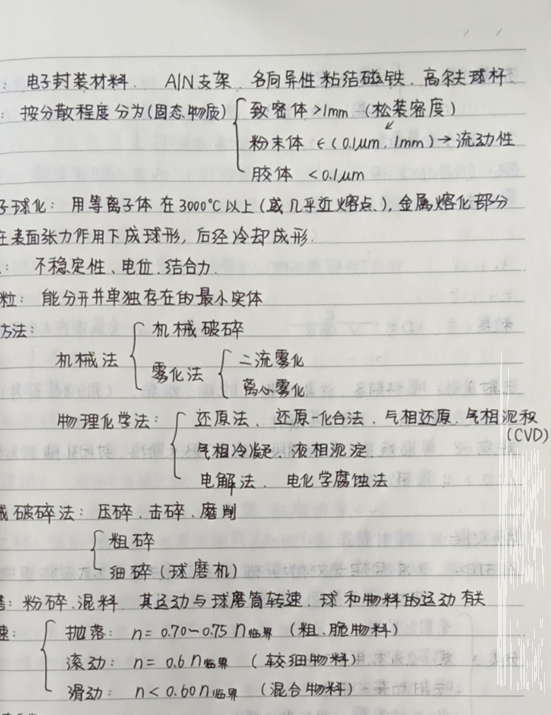 : 电子封装材料. AlN支架. 各向异性粘结磁铁. 高尔夫球杆.
: 按分散程度分为(固态物质) { 致密体 >1mm (松装密度)
粉末体 ∈(0.1μm, 1mm) → 流动性
胶体 <0.1μm
子球化: 用等离子体在3000℃以上(或几乎近熔点), 金属熔化部分
在表面张力作用下成球形, 后经冷却成形.
: 不稳定性、电位、结合力.
粒: 能分开并单独存在的最小实体
方法:
机械法 { 机械破碎
雾化法 { 二流雾化
离心雾化
物理化学法: { 还原法、还原-化合法、气相还原、气相沉积
(CVD)
气相冷凝、液相沉淀
电解法、电化学腐蚀法
械破碎法: 压碎、击碎、磨削
{ 粗碎
细碎(球磨机)
: 粉碎、混料 其运动与球磨筒转速、球和物料的运动有关
速: { 抛落: n=0.70~0.75 n临界 (粗、脆物料)
滚动: n=0.6 n临界 (较细物料)
滑动: n<0.60 n临界 (混合物料)